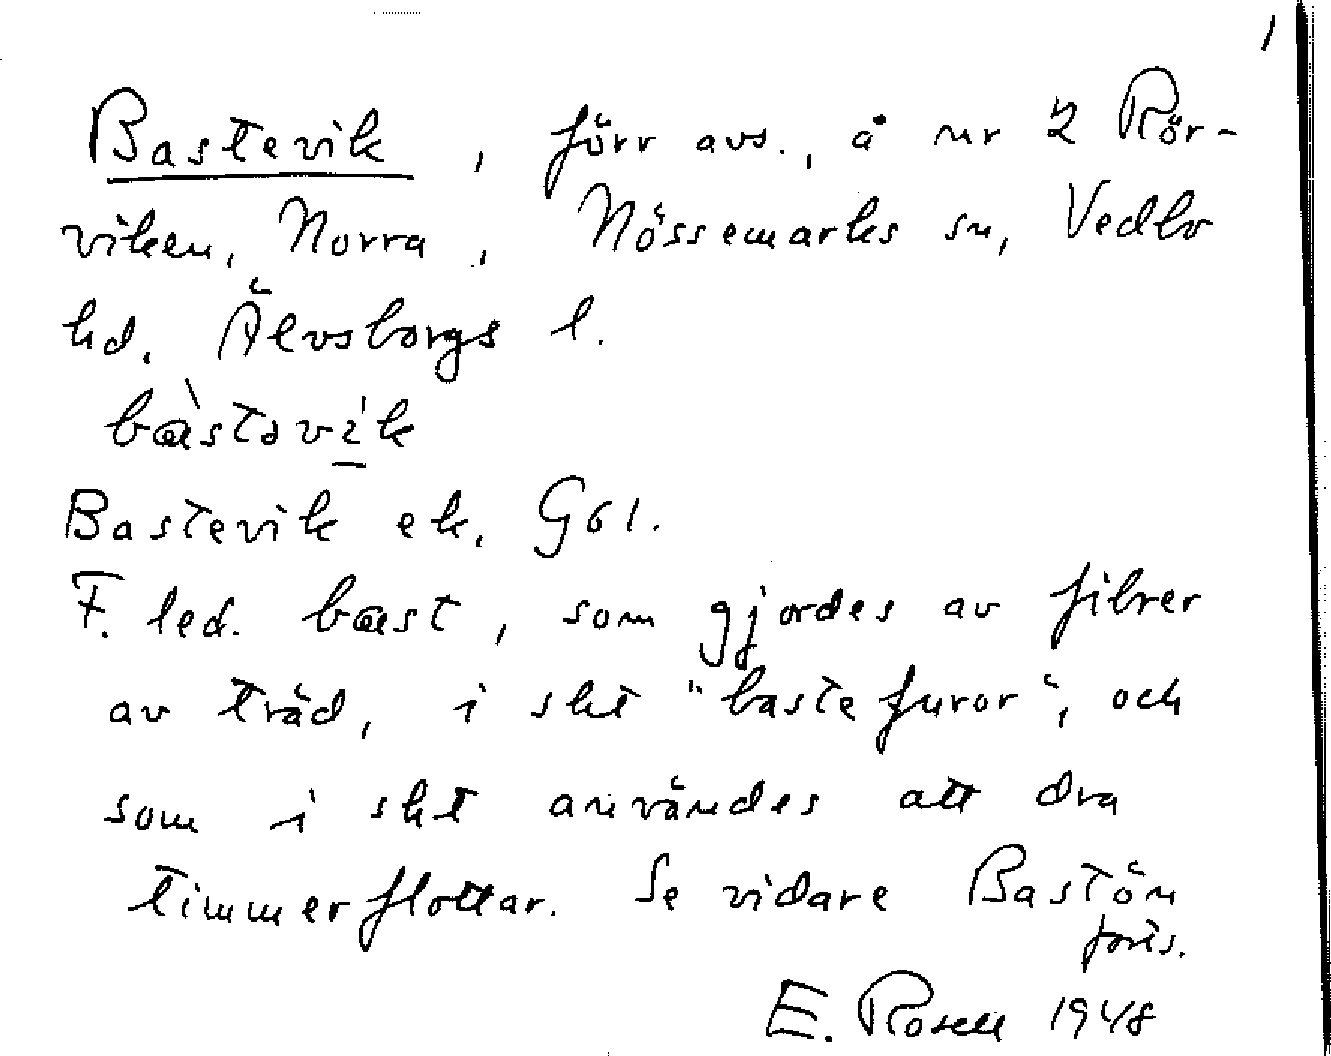 1
Bastevik, förr avs., å nr 2 Rör-
viken, Norra, Nössemarks sn, Vedbo
hd. Älvsborgs l.
bàstəvi̠k
Bastevik ek. G61.
F. led. bast, som gjordes av fibrer
av träd, i sht "bastefuror", och
som i sht användes att dra
timmerflottar. Se vidare Bastön
E. Rosell 1948